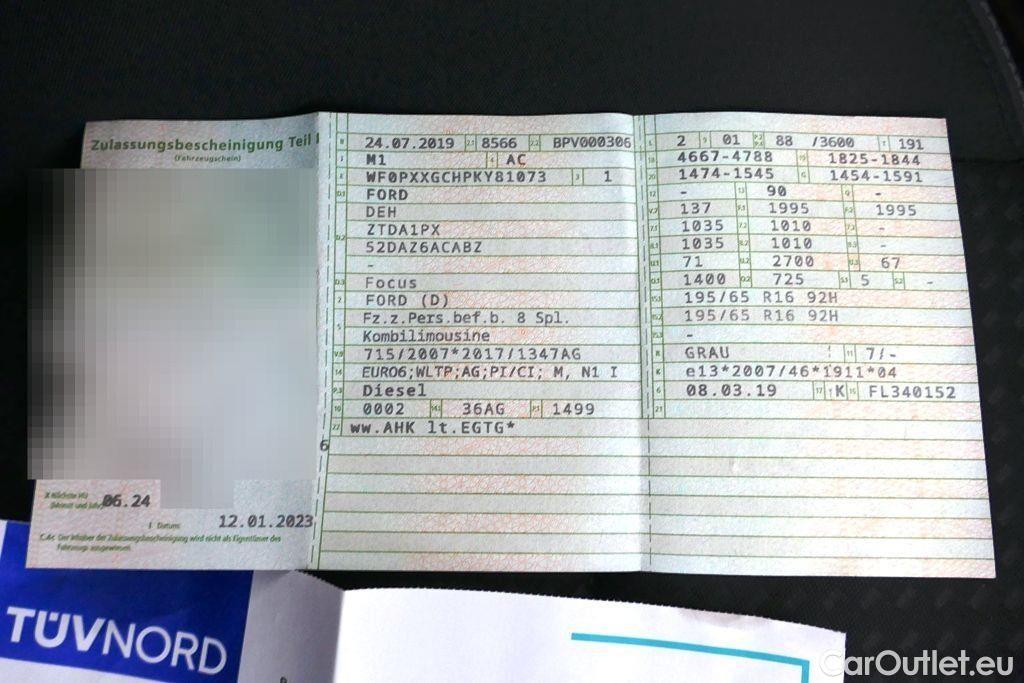 Zulassungsbescheinigung Teil I
(Fahrzeugschein)
06.24
I Datum: 12.01.2023
C.4c Der Inhaber der Zulassungsbescheinigung wird nicht als Eigentümer des
Fahrzeugs ausgewiesen.
24.07.2019 2.1 8566 2.2 BPV000306
M1 4 AC
WF0PXXGCHPKY81073 3 1
FORD
DEH
ZTDA1PX
52DAZ6ACABZ
-
Focus
FORD (D)
Fz.z.Pers.bef.b. 8 Spl.
Kombilimousine
715/2007*2017/1347AG
EURO6;WLTP;AG;PI/CI; M, N1 I
Diesel
0002 36AG 1499
ww.AHK lt.EGTG*
6
2 9 01 88 /3600 191
4667-4788 1825-1844
1474-1545 1454-1591
- 90 -
137 1995 1995
1035 1010 -
1035 1010 -
71 2700 67
1400 725 5 -
195/65 R16 92H
195/65 R16 92H
-
GRAU 11 7/-
e13*2007/46*1911*04
08.03.19 17 K 16 FL340152
21
TÜVNORD
CarOutlet.eu